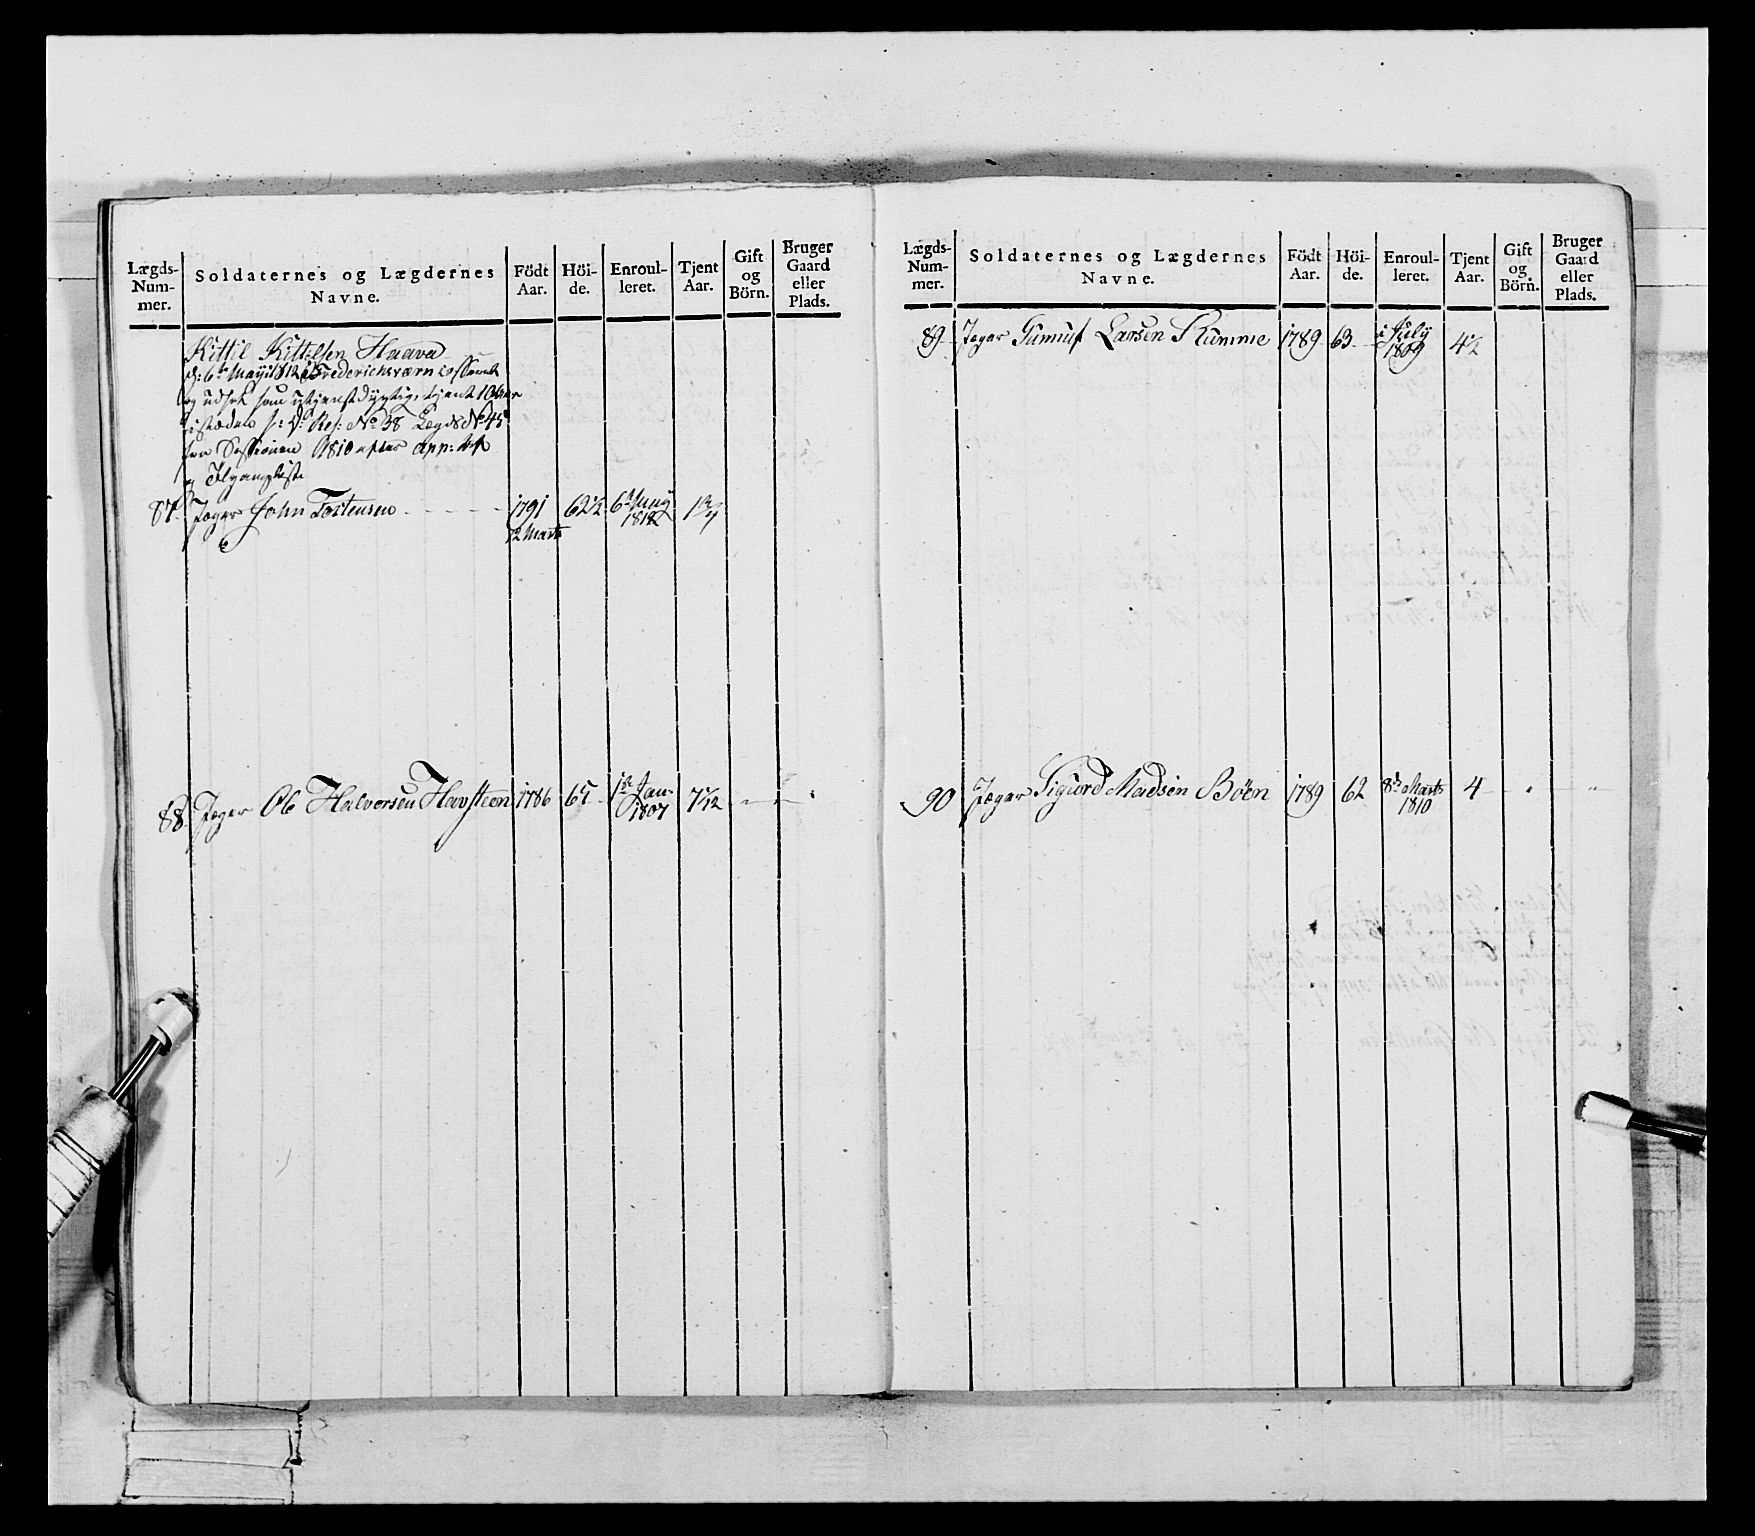 Lægds-
Num-
mer.
Soldaternes og Lægdernes
Navne.
Födt
Aar.
Höi-
de.
Enroul-
leret.
Tjent
Aar.
Gift
og
Börn.
Bruger
Gaard
eller
Plads.
Kittil Kittelsen Haava
d: 6te Mayi 1812 i Frederichsværn casseret
og udsat som utjenstdygtig, tjent 10 Aar
istæden Res: No 38 Lægds No 45
fra Sessionen 1810 efter app:
og
87. Jæger John Tostensen 1791 62½ 6te May 1812
12 Marts
88. Jæger Ole Halvorsen Havsteen 1786 65 1te Jan. 1807 7 5/12
Lægds-
Num-
mer.
Soldaternes og Lægdernes
Navne.
Födt
Aar.
Höi-
de.
Enroul-
leret.
Tjent
Aar.
Gift
og
Börn.
Bruger
Gaard
eller
Plads.
89 Jæger Gunnuf Larsen Kumme 1789 63 i July 1809 4½
90 Jæger Sigurd Madsen Böen 1789 62 8de Marts 1810 4